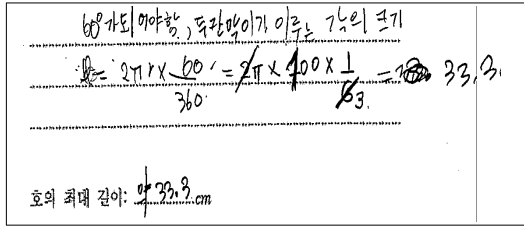 60°가 되어야함, 두 칸막이가 이루는 각의 크기
l = 2πr × 60/360 = 2π × 100 × 1/6 3. = 33.3.
호의 최대 길이: 약 33.3 cm